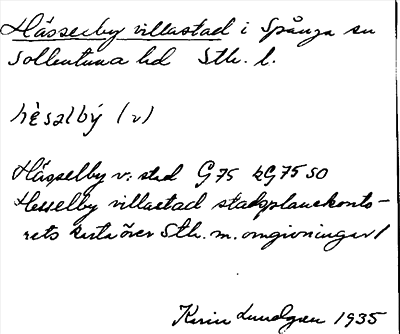 Hässelby villastad i Spånga sn
Sollentuna hd Sth. l.
hèsəlbý (v)
Hässelby v:stad G75 kG75 SO
Hesselby villastad stadsplanekonto-
rets karta över Sth. m. omgivningar/
Karin Lundgren 1935